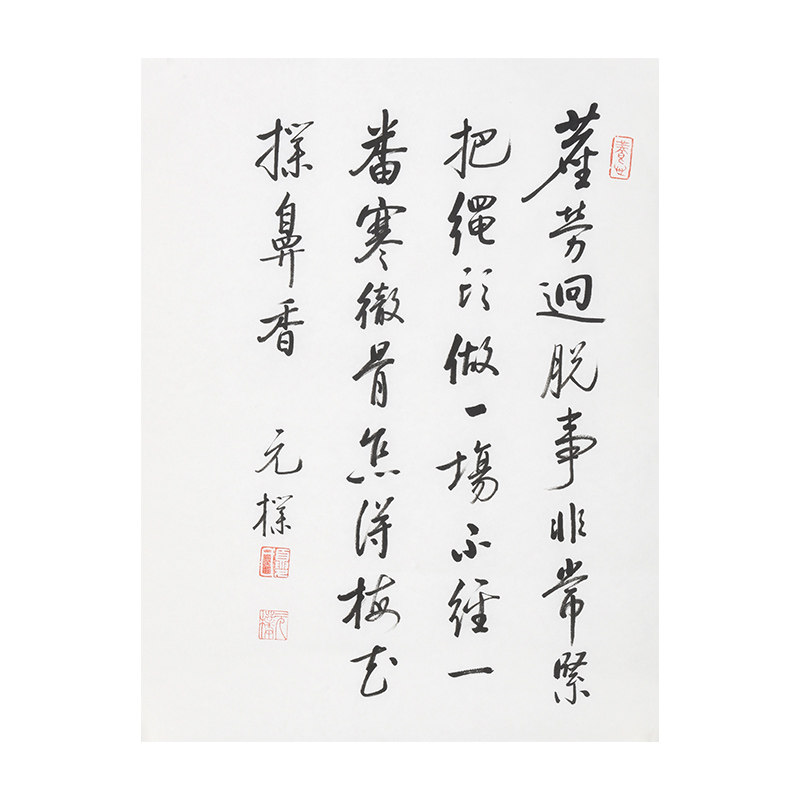 塵劳逈脱事非常緊
把繩頭做一塲不經一
番寒徹骨怎得梅花
撲鼻香 元撲